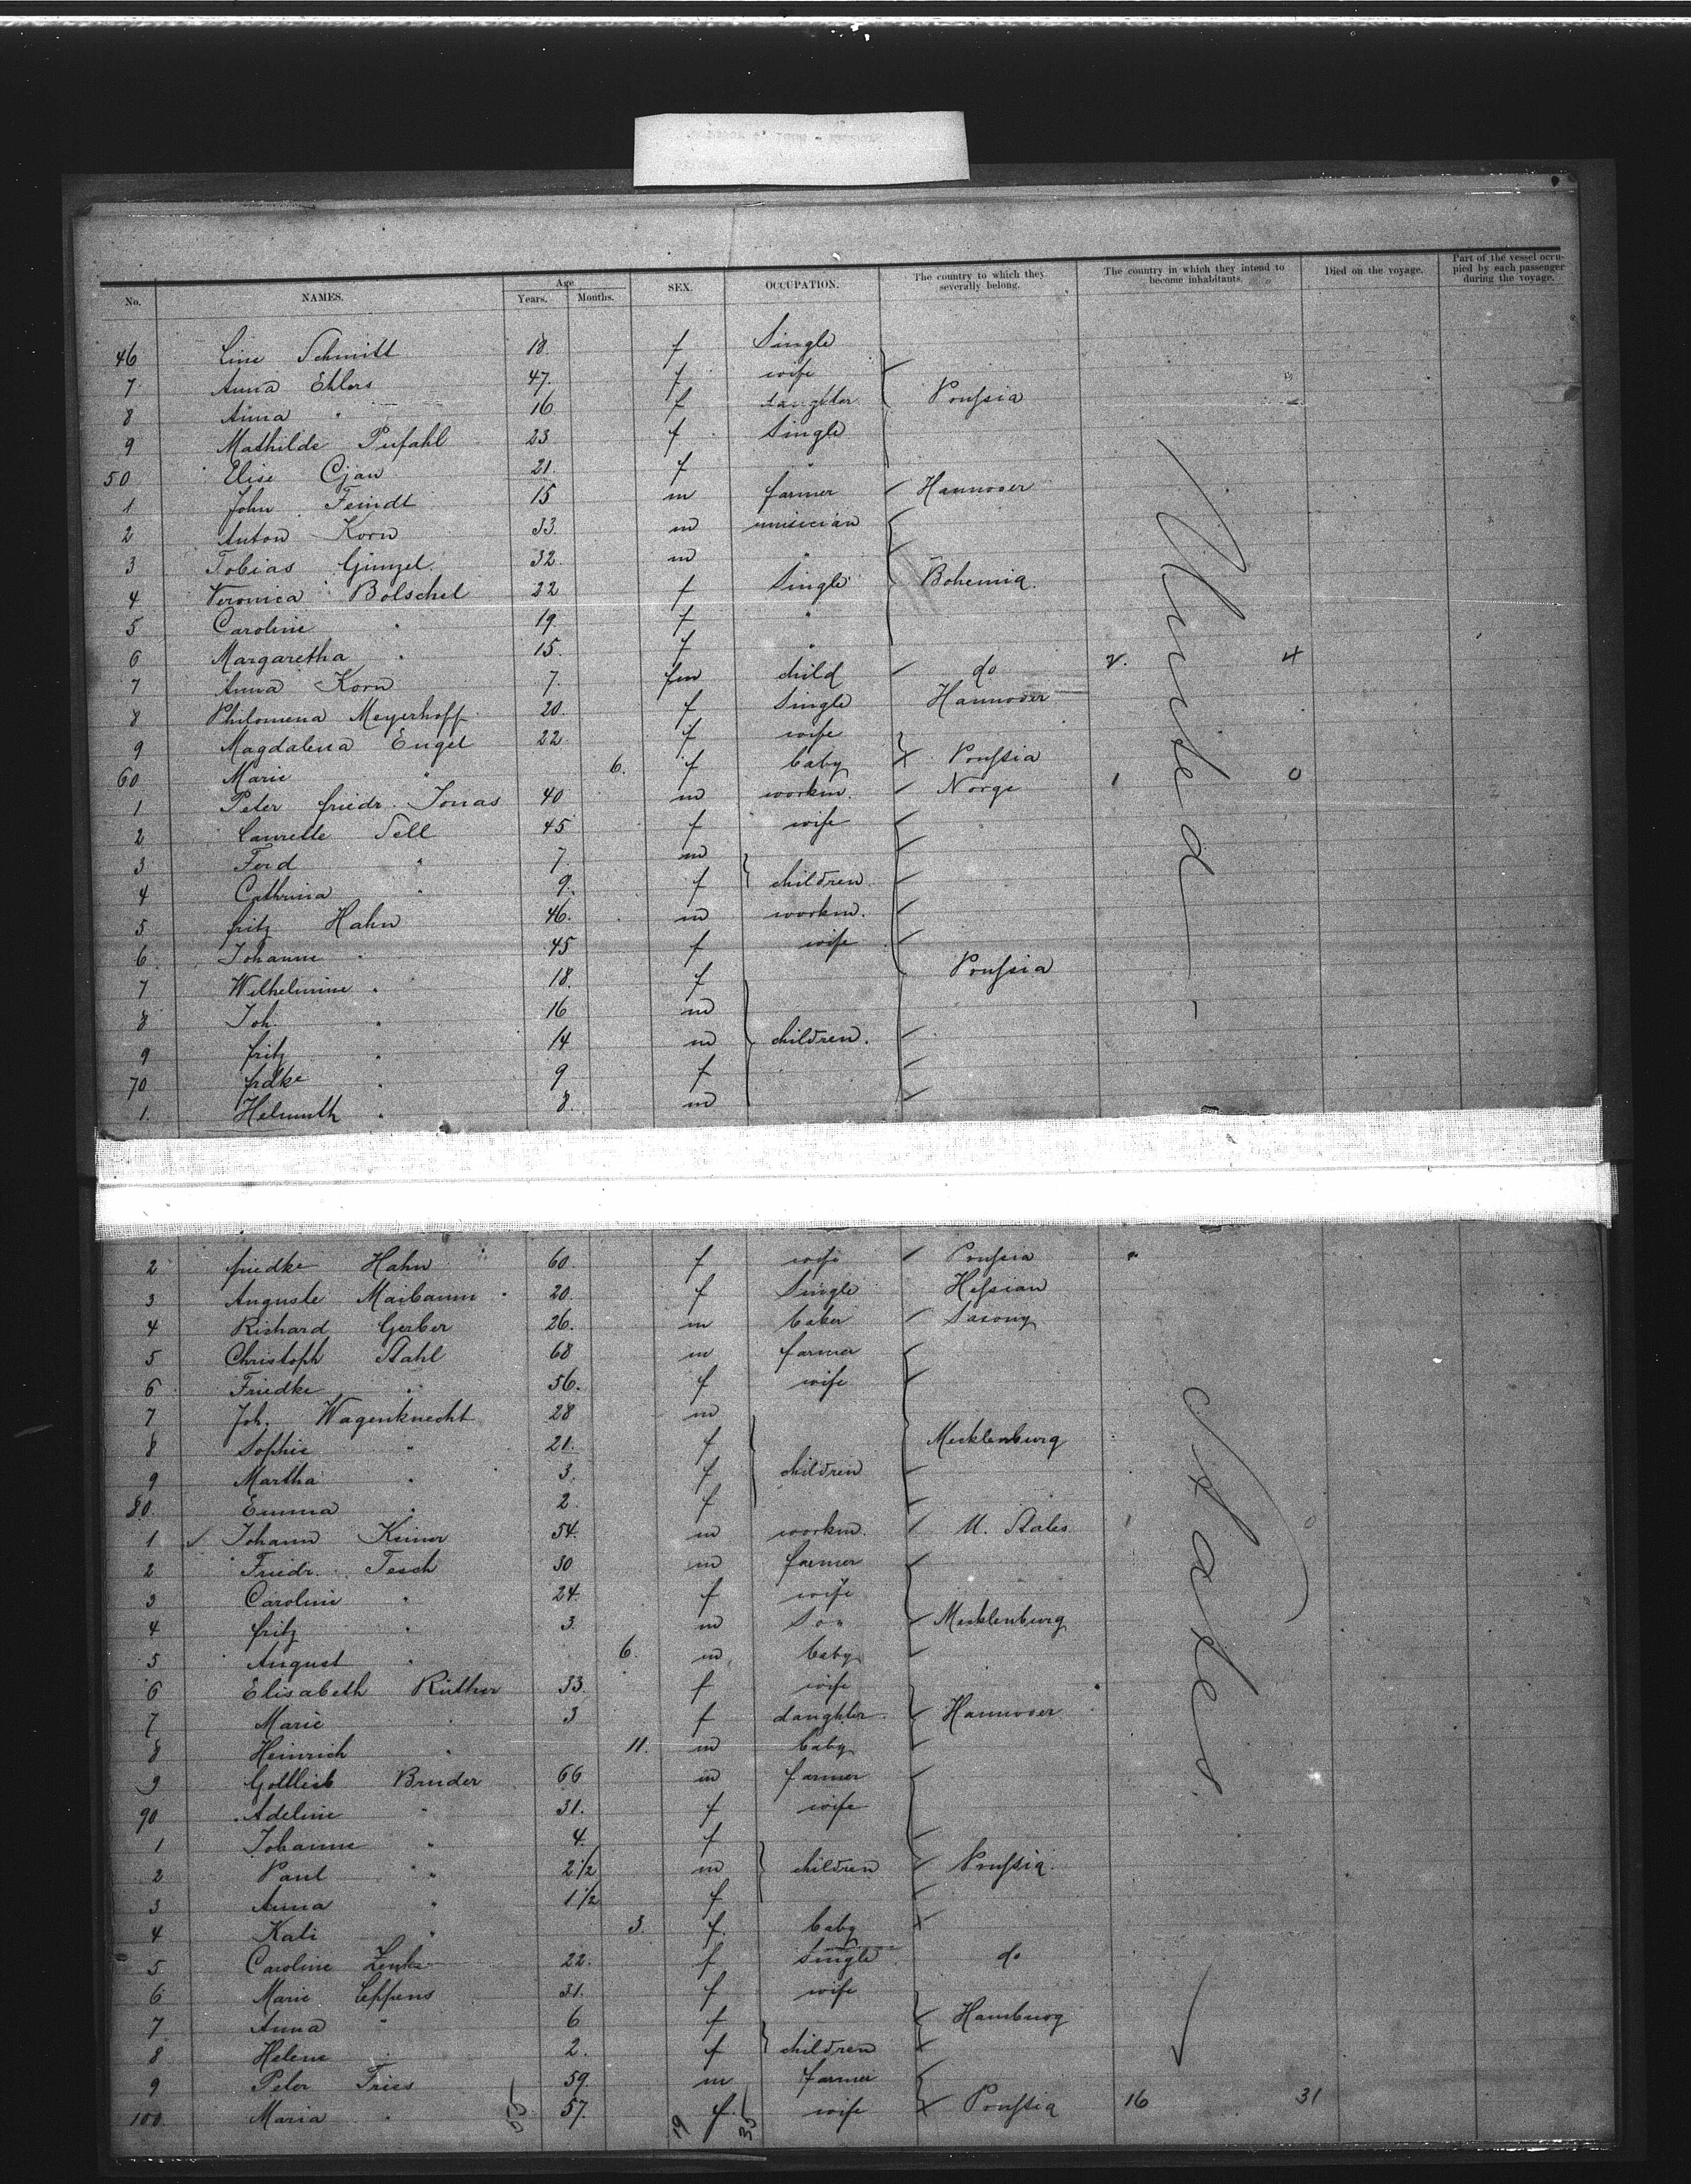 No. NAMES. Age Years. Months. SEX. OCCUPATION. The country to which they severally belong. The country in which they intend to become inhabitants. Died on the voyage. Part of the vessel occupied by each passenger during the voyage.
46 Line Schmitt 18. f Single
7 Anna Ehlers 47. f wife
8 Anna " 16 f daughter Preussia
9 Mathilde Pufahl 23 f Single
50 Elise Cjan 21 f "
1 John Feindt 15 m farmer Hannover
2 Anton Korn 33. m musician
3 Tobias Günzel 32. m "
4 Veronica Bolschel 22 f Single Bohemia.
5 Caroline " 19. f "
6 Margaretha " 15. f "
7 Anna Korn 7. fm child do 2. 4
8 Philomena Meyerhoff 20. f Single Hannover
9 Magdalena Engel 22 f wife
60 Marie " 6. f baby Preussia
1 Peter friedr. Jonas 40 m workm. Norge 1 0
2 Laurette Sell 45 f wife
3 Ferd " 7 m
4 Cathrina " 9. f children
5 fritz Hahn 46. m workm.
6 Johanne " 45 f wife
7 Wilhelmine " 18. f Preussia
8 Joh " 16 m
9 fritz " 14 m children.
70 frdke " 9 f
1. Helmuth " 8. m
United
2 friedke Hahn 60. f wife Preussia "
3 Auguste Maibaum 20. f Single Hessian
4 Rishard Gerber 26. m baker Saxony
5 Christoph Stahl 68 m farmer
6 Friedke " 56. f wife
7 Joh. Wagenknecht 28 m
8 Sophie " 21. f Mecklenburg
9 Martha " 3. f children
80. Emma " 2. f
1 Johann Keiner 54. m workm. U. States 1 0
2 Friedr. Tesch 30 m farmer
3 Caroline " 24. f wife
4 fritz " 3. m Son Mecklenburg
5 August " 6. m baby
6 Elisabeth Rüther 33. f wife
7 Marie " 3 f daughter Hannover
8 Heinrich " 11. m baby
9 Gottlieb Bruder 66 m farmer
90 Adeline " 31. f wife
1 Johanne " 4. f
2 Paul " 2 1/2 m children Preussia.
3 Anna " 1 1/2 f
4 Kati " 3. f. baby
5 Caroline Zenke 22. f Single do
6 Marie Eppens 31. f wife
7 Anna " 6 f Hamburg
8 Helene 2. f children
9 Peter Fries 59. m farmer
100. Maria " 57. f. wife Preussia 16 31
States.
55 19 35